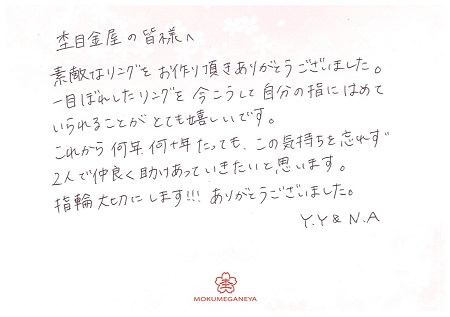 杢目金屋の皆様へ
素敵なリングをお作り頂きありがとうございました。
一目ぼれしたリングを今こうして自分の指にはめて
いられることがとても嬉しいです。
これから何年、何十年たっても、この気持ちを忘れず
2人で仲良く助けあっていきたいと思います。
指輪大切にします!!! ありがとうございました。
Y.Y & N.A
MOKUMEGANEYA